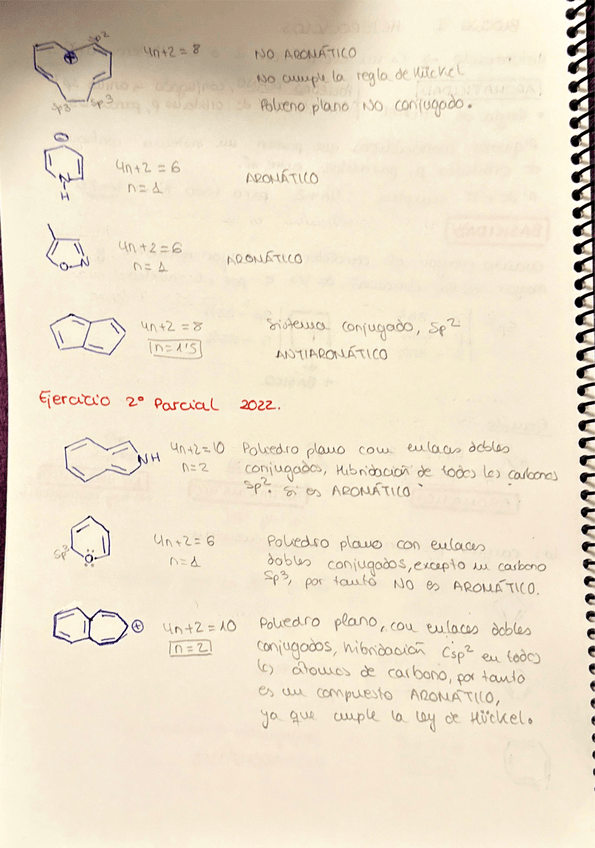 sp²
4n+2 = 8 NO AROMÁTICO
No cumple la regla de Hückel
sp3 sp3 Polieno plano NO conjugado.
⊖
4n+2 = 6
n = 1 AROMÁTICO
N
H
4n+2 = 6
n = 1 AROMÁTICO
O N
4n+2 = 8 Sistema conjugado, Sp²
n = 1'5 ANTIAROMÁTICO
Ejercicio 2º Parcial 2022.
NH 4n+2 = 10 Poliedro plano con enlaces dobles
n = 2 conjugados, Hibridación de todos los carbonos
Sp². Si es AROMÁTICO.
4n+2 = 6 Poliedro plano con enlaces
Sp³ n = 1 dobles conjugados, excepto un carbono
O Sp3, por tanto NO es AROMÁTICO.
⊕ 4n+2 = 10 Poliedro plano, con enlaces dobles
n = 2 conjugados, hibridación Csp² en todos
los átomos de carbono, por tanto
es un compuesto AROMÁTICO,
ya que cumple la ley de Hückel.